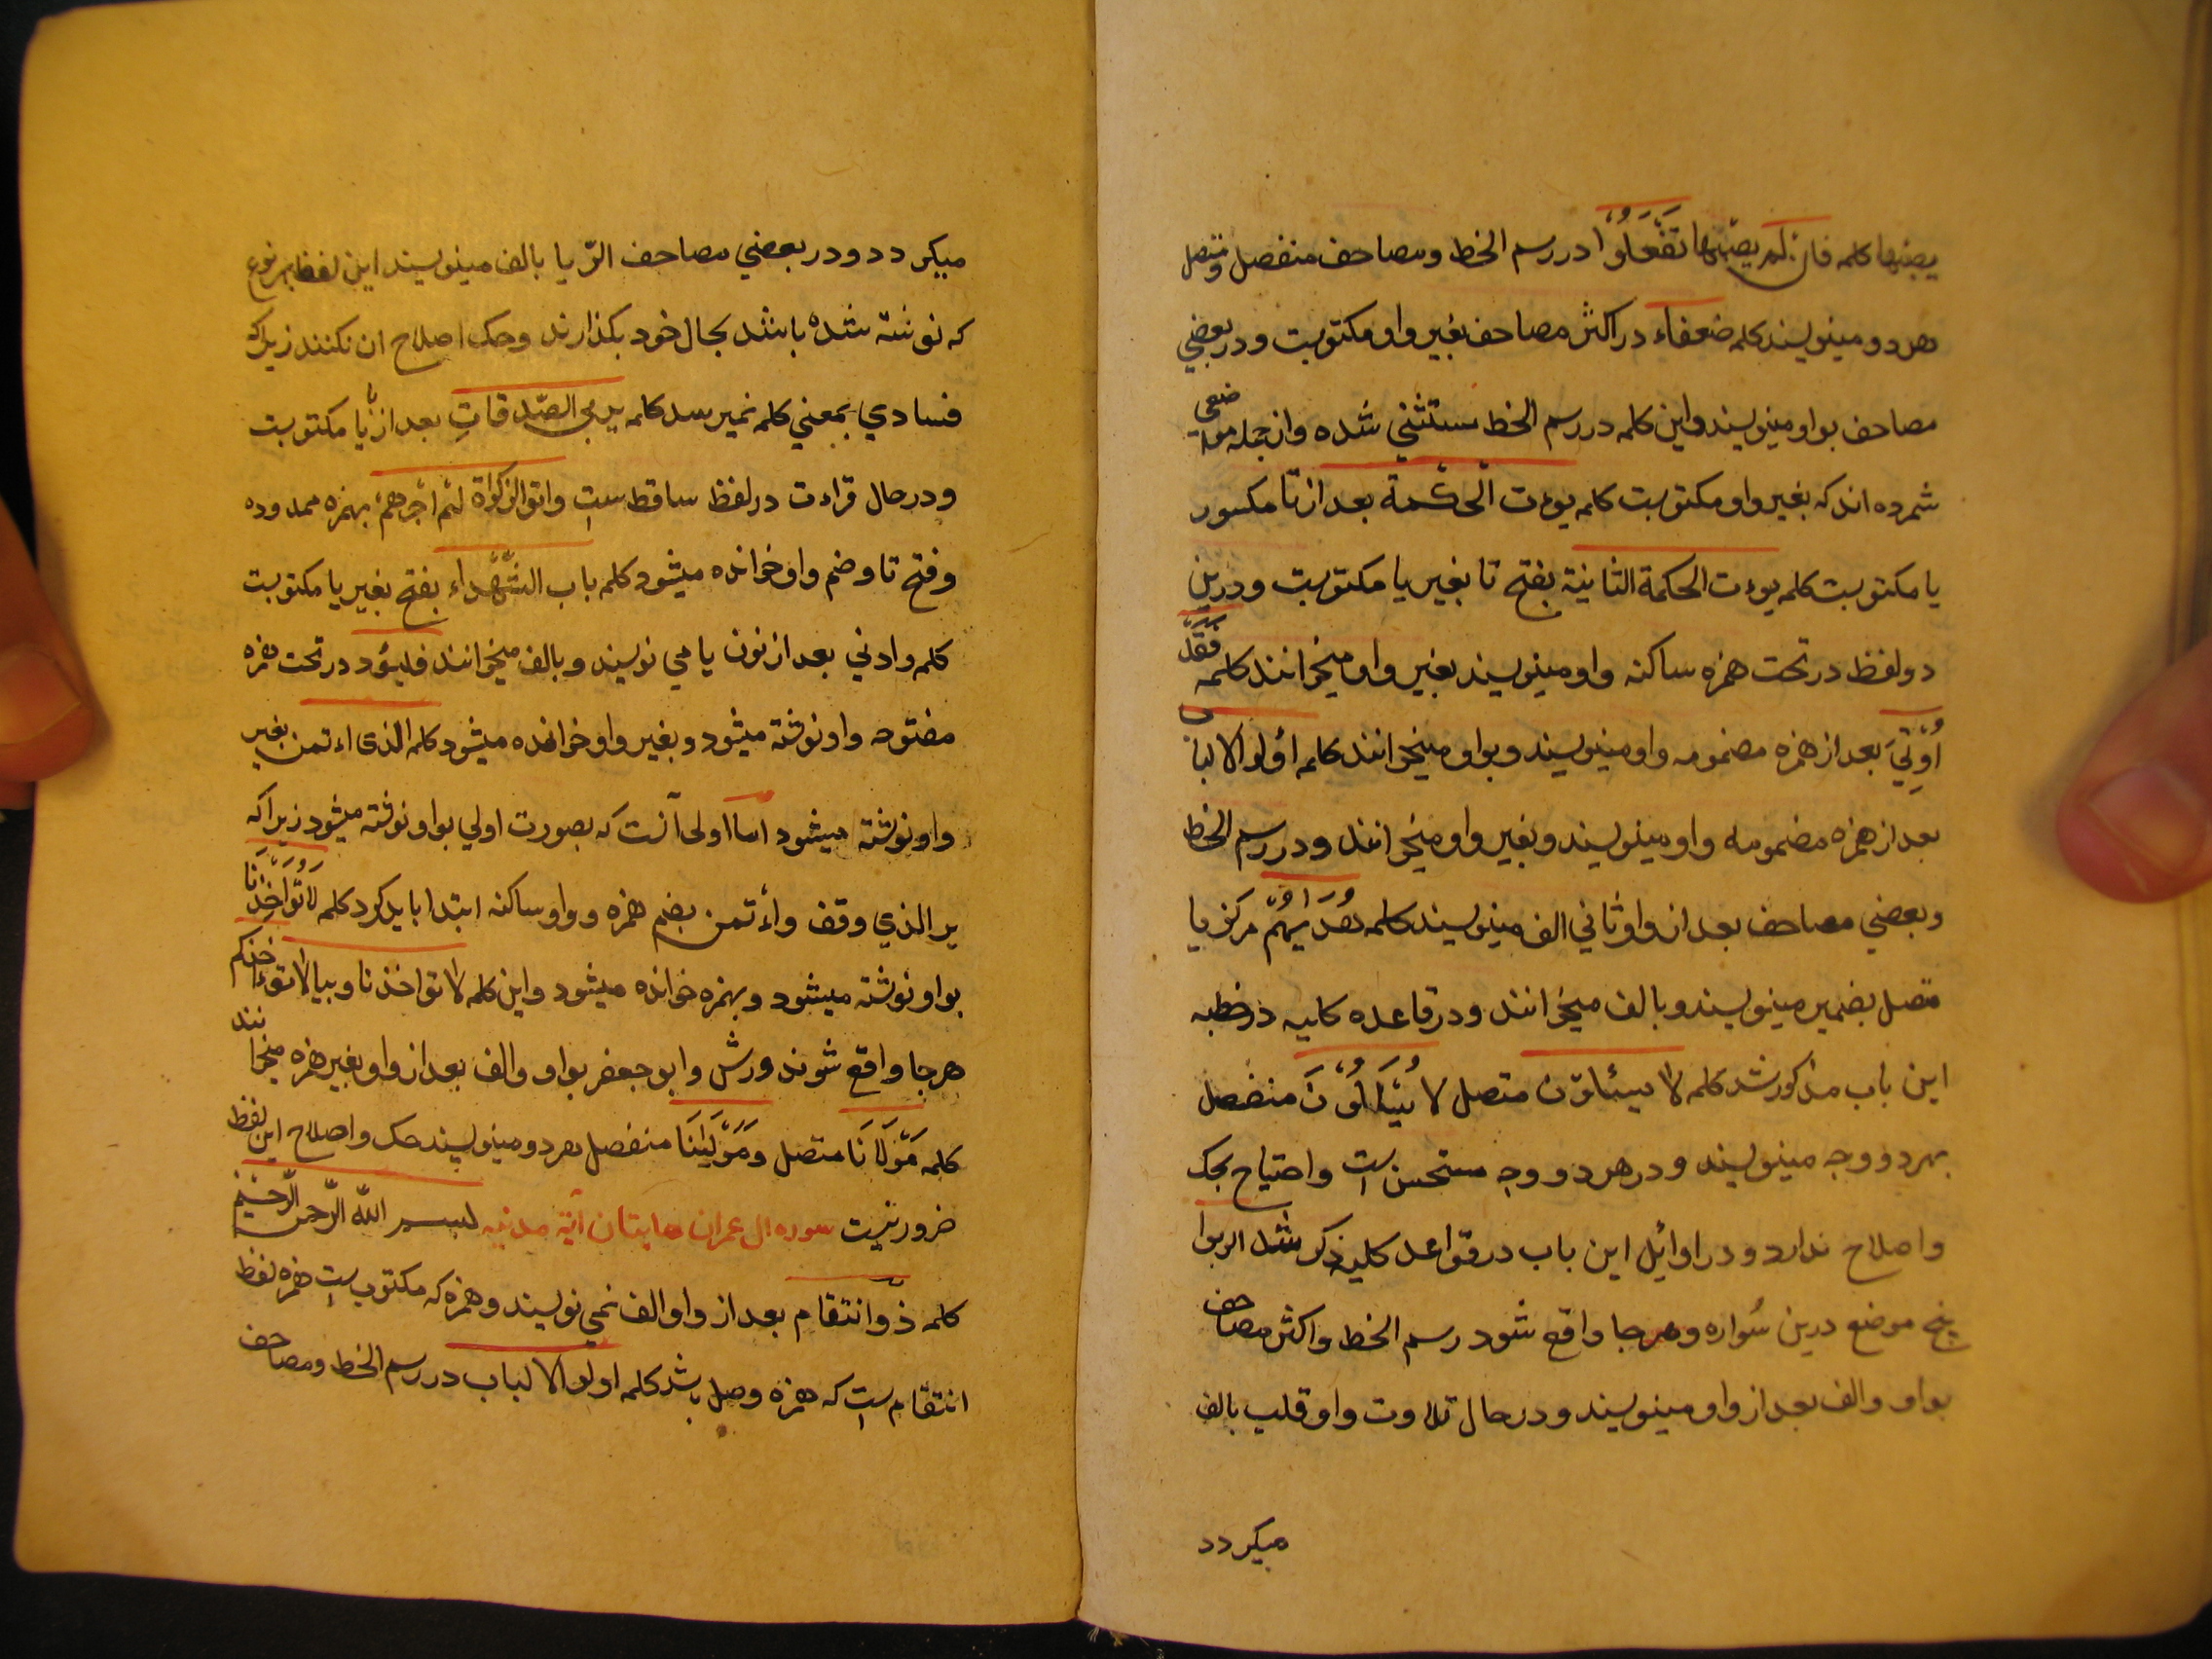 یصبها کلمه فان لم یصبها تفعلوا در رسم الخط و مصاحف منفصل و متصل
هردو مینویسند کلمه ضعفاء در اکثر مصاحف بغیر واو مکتوبست و در بعضی
مصاحف بواو مینویسند و این کلمه در رسم الخط مستثنی شده و از جمله مواضعی
شمرده اند که بغیر واو مکتوبست کلمه یوءت الحکمة بعد از تا مکسور
یا مکتوبست کلمه یوءت الحکمة الثانیة بفتح تا بغیر یا مکتوبست و درین
دو لفظ در تحت همزه ساکنه واو مینویسند بغیر واو میخوانند کلمه فَقَدْ
اُوتِیَ بعد از همزه مضمومه واو مینویسند و بواو میخوانند کلمه اولوا الالباب
بعد از همزه مضمومه واو مینویسند و بغیر واو میخوانند و در رسم الخط
و بعضی مصاحف بعد از واو ثانی الف مینویسند کلمه هدیهم مرکز یا
متصل بضمیر مینویسند و بالف میخوانند و در قاعده کلیه در خطبه
این باب مذکور شد کلمه لا یسئلون متصل لا یسئلون منفصل
بهر دو وجه مینویسند و در هر دو وجه مستحسن است و احتیاج بحک
و اصلاح ندارد و در اوائل این باب در قواعد کلیه ذکر شد الربوا
پنج موضع درین سُوره و هر جا واقع شود رسم الخط و اکثر مصاحف
بواو و الف بعد از واو مینویسند و در حال تلاوت واو قلب بالف
میکردد
میکردد و در بعضی مصاحف الرّبا بالف مینویسند این لفظ بهر نوع
که نوشته شده باشد بحال خود بکذارند و حک و اصلاح ان نکنند زیرا که
فسادی بمعنی کلمه نمیرسد کلمه یربی الصّدقاتِ بعد از با یا مکتوبست
و در حال قراءت در لفظ ساقط است واتوا الزکوٰة لهم اجرهم بهمزه ممدوده
و فتح تا و ضم واو خوانده میشود کلمه باب الشّهداء بفتح بغیر یا مکتوبست
کلمه و ادنی بعد از نون یا می نویسند و بالف میخوانند فلیؤد در تحت همزه
مفتوحه واو نوشته میشود و بغیر واو خوانده میشود کلمه الذی اءتمن بغیر
واو نوشته میشود اما اولی آنست که بصورت اولی بواو نوشته میشود زیرا که
بر الذی وقف و اُءتمن بضم همزه و واو ساکنه ابتدا باید کرد کلمه لا تواخذنا
بواو نوشته میشود و بهمزه خوانده میشود و این کلمه لا تواخذنا و بیا لا تواخذکم
هر جا واقع شوند ورش و ابو جعفر بواو و الف بعد از واو بغیر همزه میخوانند
کلمه مَوْلَانَا متصل و مَوْلَیٰنَا منفصل هر دو مینویسند حک و اصلاح این لفظ
ضرور نیست سوره ال عمران مایتان آیة مدنیه بسم الله الرّحمن الرّحیم
کلمه ذو انتقام بعد از واو الف نمی نویسند و همزه که مکتوب است همزه لفظ
انتقام است که همزه وصل باشد کلمه اولوا الالباب در رسم الخط و مصاحف